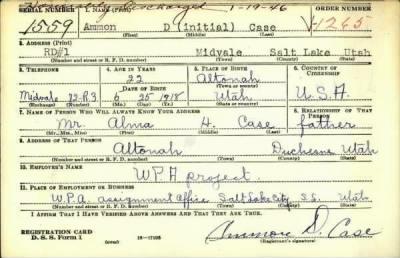 Discharged 1-19-46
SERIAL NUMBER 1. NAME (Print) ORDER NUMBER
1559 Ammon D (initial) Case V-1265
2. ADDRESS (Print)
RD#1 Midvale Salt Lake Utah
(Number and street or R. F. D. number) (Town) (County) (State)
3. TELEPHONE 4. AGE IN YEARS 5. PLACE OF BIRTH 6. COUNTRY OF CITIZENSHIP
22 Altonah
DATE OF BIRTH
Midvale 72-R3 6 25 1918 Utah U.S.A
(Exchange) (Number) (Mo.) (Day) (Yr.) (State or country)
7. NAME OF PERSON WHO WILL ALWAYS KNOW YOUR ADDRESS 8. RELATIONSHIP OF THAT PERSON
Mr. Alma H. Case father
(Mr., Mrs., Miss) (First) (Middle) (Last)
9. ADDRESS OF THAT PERSON
Altonah Duchesne Utah
(Number and street or R. F. D. number) (Town) (County) (State)
10. EMPLOYER'S NAME
WPA project.
11. PLACE OF EMPLOYMENT OR BUSINESS
W.P.A. assignment Office Salt Lake City S.L. Utah
(Number and street or R. F. D. number) (Town) (County) (State)
I AFFIRM THAT I HAVE VERIFIED ABOVE ANSWERS AND THAT THEY ARE TRUE.
REGISTRATION CARD
D. S. S. Form 1 Ammon D. Case
(Registrant's signature)